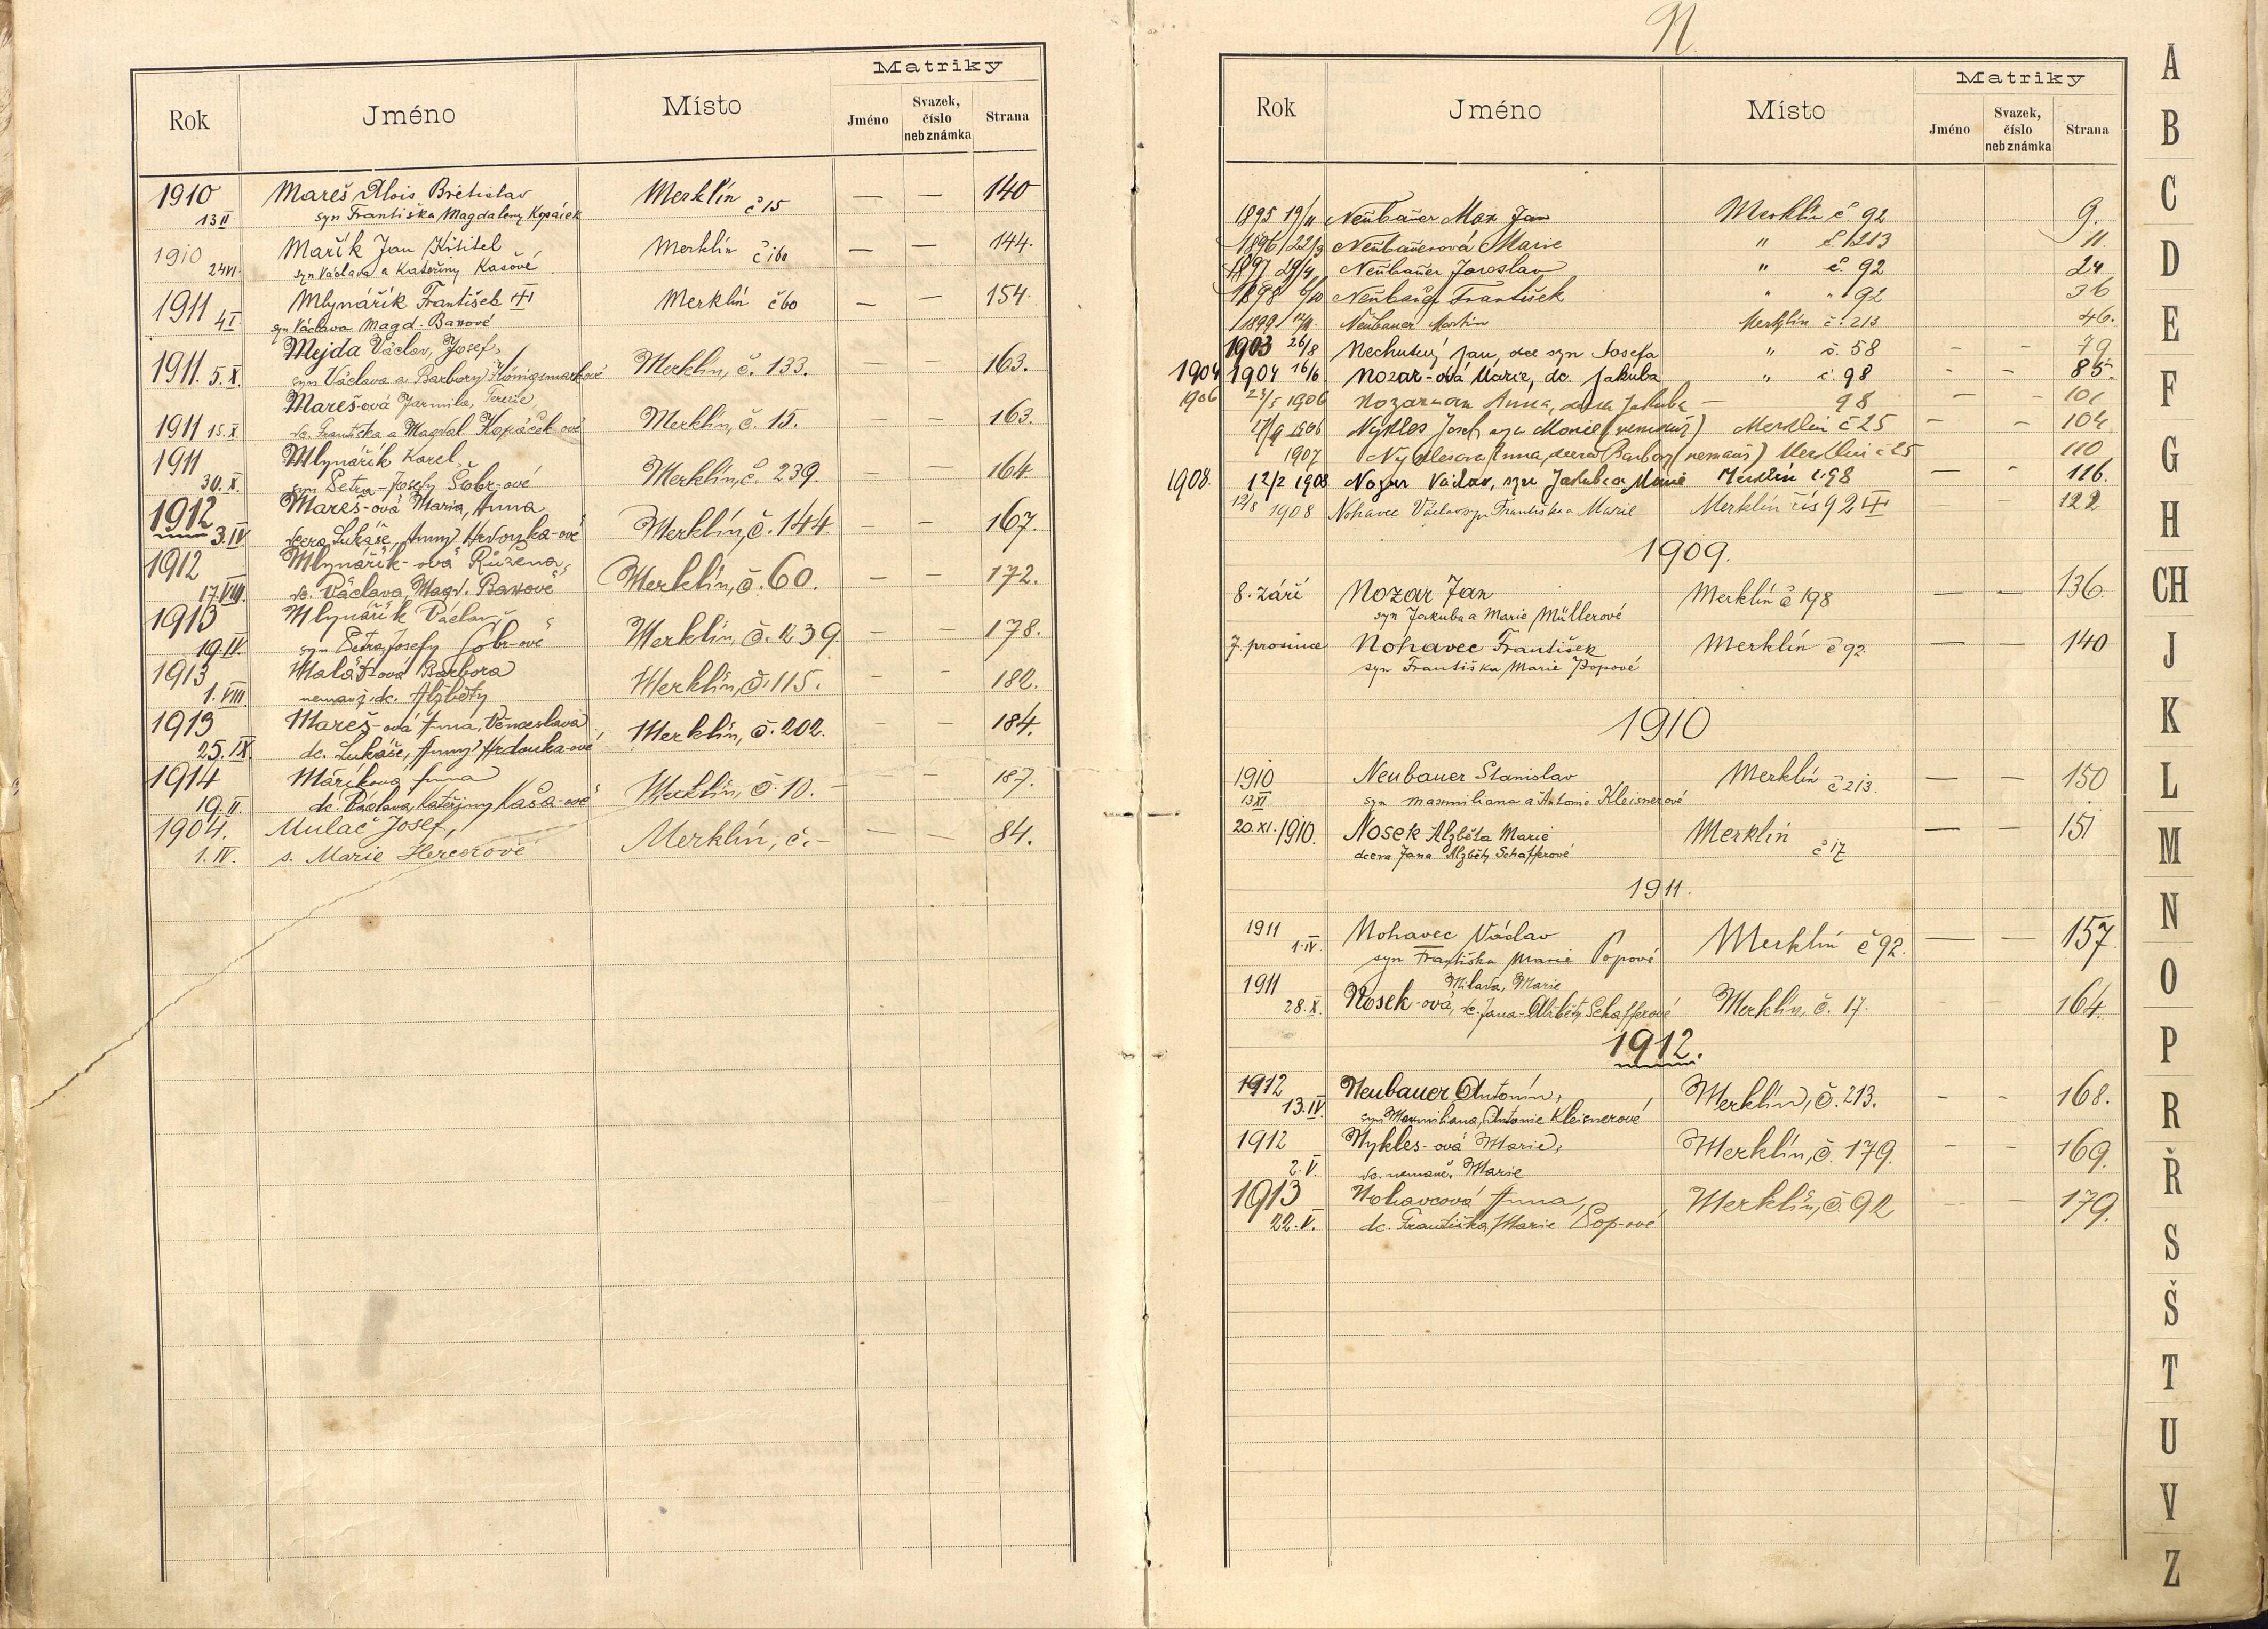 Rok Jméno Místo Matriky
Jméno Svazek, číslo neb známka Strana
1910 Mareš Alois Břetislav Merklín č 15 — — 140
13 II syn Františka Magdaleny Kopáček
1910 Mařík Jan Křtitel Merklín č 160 — — 144.
24 VI. syn Václava a Kateřiny Kašové
1911 Mlynářík František Merklín č 60 — — 154.
4 I. syn Václava Magd. Baxové
Mejda Václav, Josef,
1911. 5. X. syn Václava a Barbory Königsmarkové Merklín, č. 133. — — 163.
Mareš-ová Jarmila, Terezie
1911 15. X. dc. Františka a Magdal. Kopáček-ové Merklín, č. 15. — — 163.
1911 Mlynářík Karel,
30. X. syn Petra-Josefy Šobr-ové Merklín, č. 239. — — 164.
1912 Mareš-ová Maria, Anna
3. IV. dcera Lukáše, Anny Hrdouska-ové Merklín, č. 144. — — 167.
1912 Mlynářík-ová Růžena,
17. VIII. dc. Václava, Magd. Baxové Merklín, č. 60. — — 172.
1913 Mlynářík Václav,
19. IV. syn Petra, Josefy Šobr-ové Merklín, č. 239. — — 178.
1913 Malátová Barbora
1. VIII nemanž. dc. Alžběty Merklín, č. 115. — — 182.
1913 Mareš-ová Anna, Věnceslava
25. IX. dc. Lukáše, Anny Hrdouska-ové Merklín, č. 202. — — 184.
1914 Maříková Anna
19. II. dc. Václava, Kateřiny Kaša-ové Merklín, č. 10. — — 187.
1904. Mulač Josef,
1. IV. s. Marie Hercerové Merklín, č. - — — 84.
N
Rok Jméno Místo Matriky
Jméno Svazek, číslo neb známka Strana
1895 19/11 Neubauer Max Jan Merklín č. 92 9.
1896 22/3 Neubauerová Marie " č. 213 11.
1897 29/4 Neubauer Jaroslav " č. 92 24
1898 Neubauer František " " 92 36
1899 Neubauer Martin Merklín č. 213 46.
1903 26/8 Nechutný Jan, syn Josefa " č. 58 - - 79
1904 1904 16/6 Nozar-ová Marie, dc. Jakuba " č 98 - - 85.
1906 23/5 1906 Nozarová Anna, dcera Jakuba — 98 - - 101
17/9 1906 Nykles Josef syn Marie (nemanž) Merklín č 25 - - 104
1907 Nyklesová Anna, dcera Barbory (nemanž) Merklín č 25 110
1908. 12/2 1908 Nozar Václav, syn Jakuba a Marie Merklín č. 98 — - 116.
12/8 1908 Nohavec Václav syn Františka a Marie Merklín čís 92 — - 122
1909.
8. září Nozar Jan Merklín č 198 — — 136.
syn Jakuba a Marie Müllerové
7. prosince Nohavec František Merklín č 92 — — 140
syn Františka Marie Popové
1910
1910 Neubauer Stanislav Merklín č 213. — — 150
13 XI syn Maxmiliana a Antonie Kleisnerové
20. XI. 1910. Nosek Alžběta Marie Merklín č 17 — — 151
dcera Jana Alžběty Schafferové
1911.
1911 Nohavec Václav Merklín č 92. — — 157.
1. IV. syn Františka Marie Popové
1911 Milava, Marie
28. X. Nosek-ová, dc. Jana-Alžběty Schafferové Merklín, č. 17. 164.
1912.
1912 Neubauer Antonín,
13. IV. syn Maxmiliana, Antonie Kleisnerové Merklín, č. 213. - - 168.
1912 Nykles-ová Marie,
2. V. dc. nemanž. Marie Merklín, č. 179. - - 169.
1913 Nohavcová Anna,
22. V. dc. Františka, Marie Pop-ové Merklín, č. 92 — - 179.
A
B
C
D
E
F
G
H
CH
J
K
L
M
N
O
P
R
Ř
S
Š
T
U
V
Z